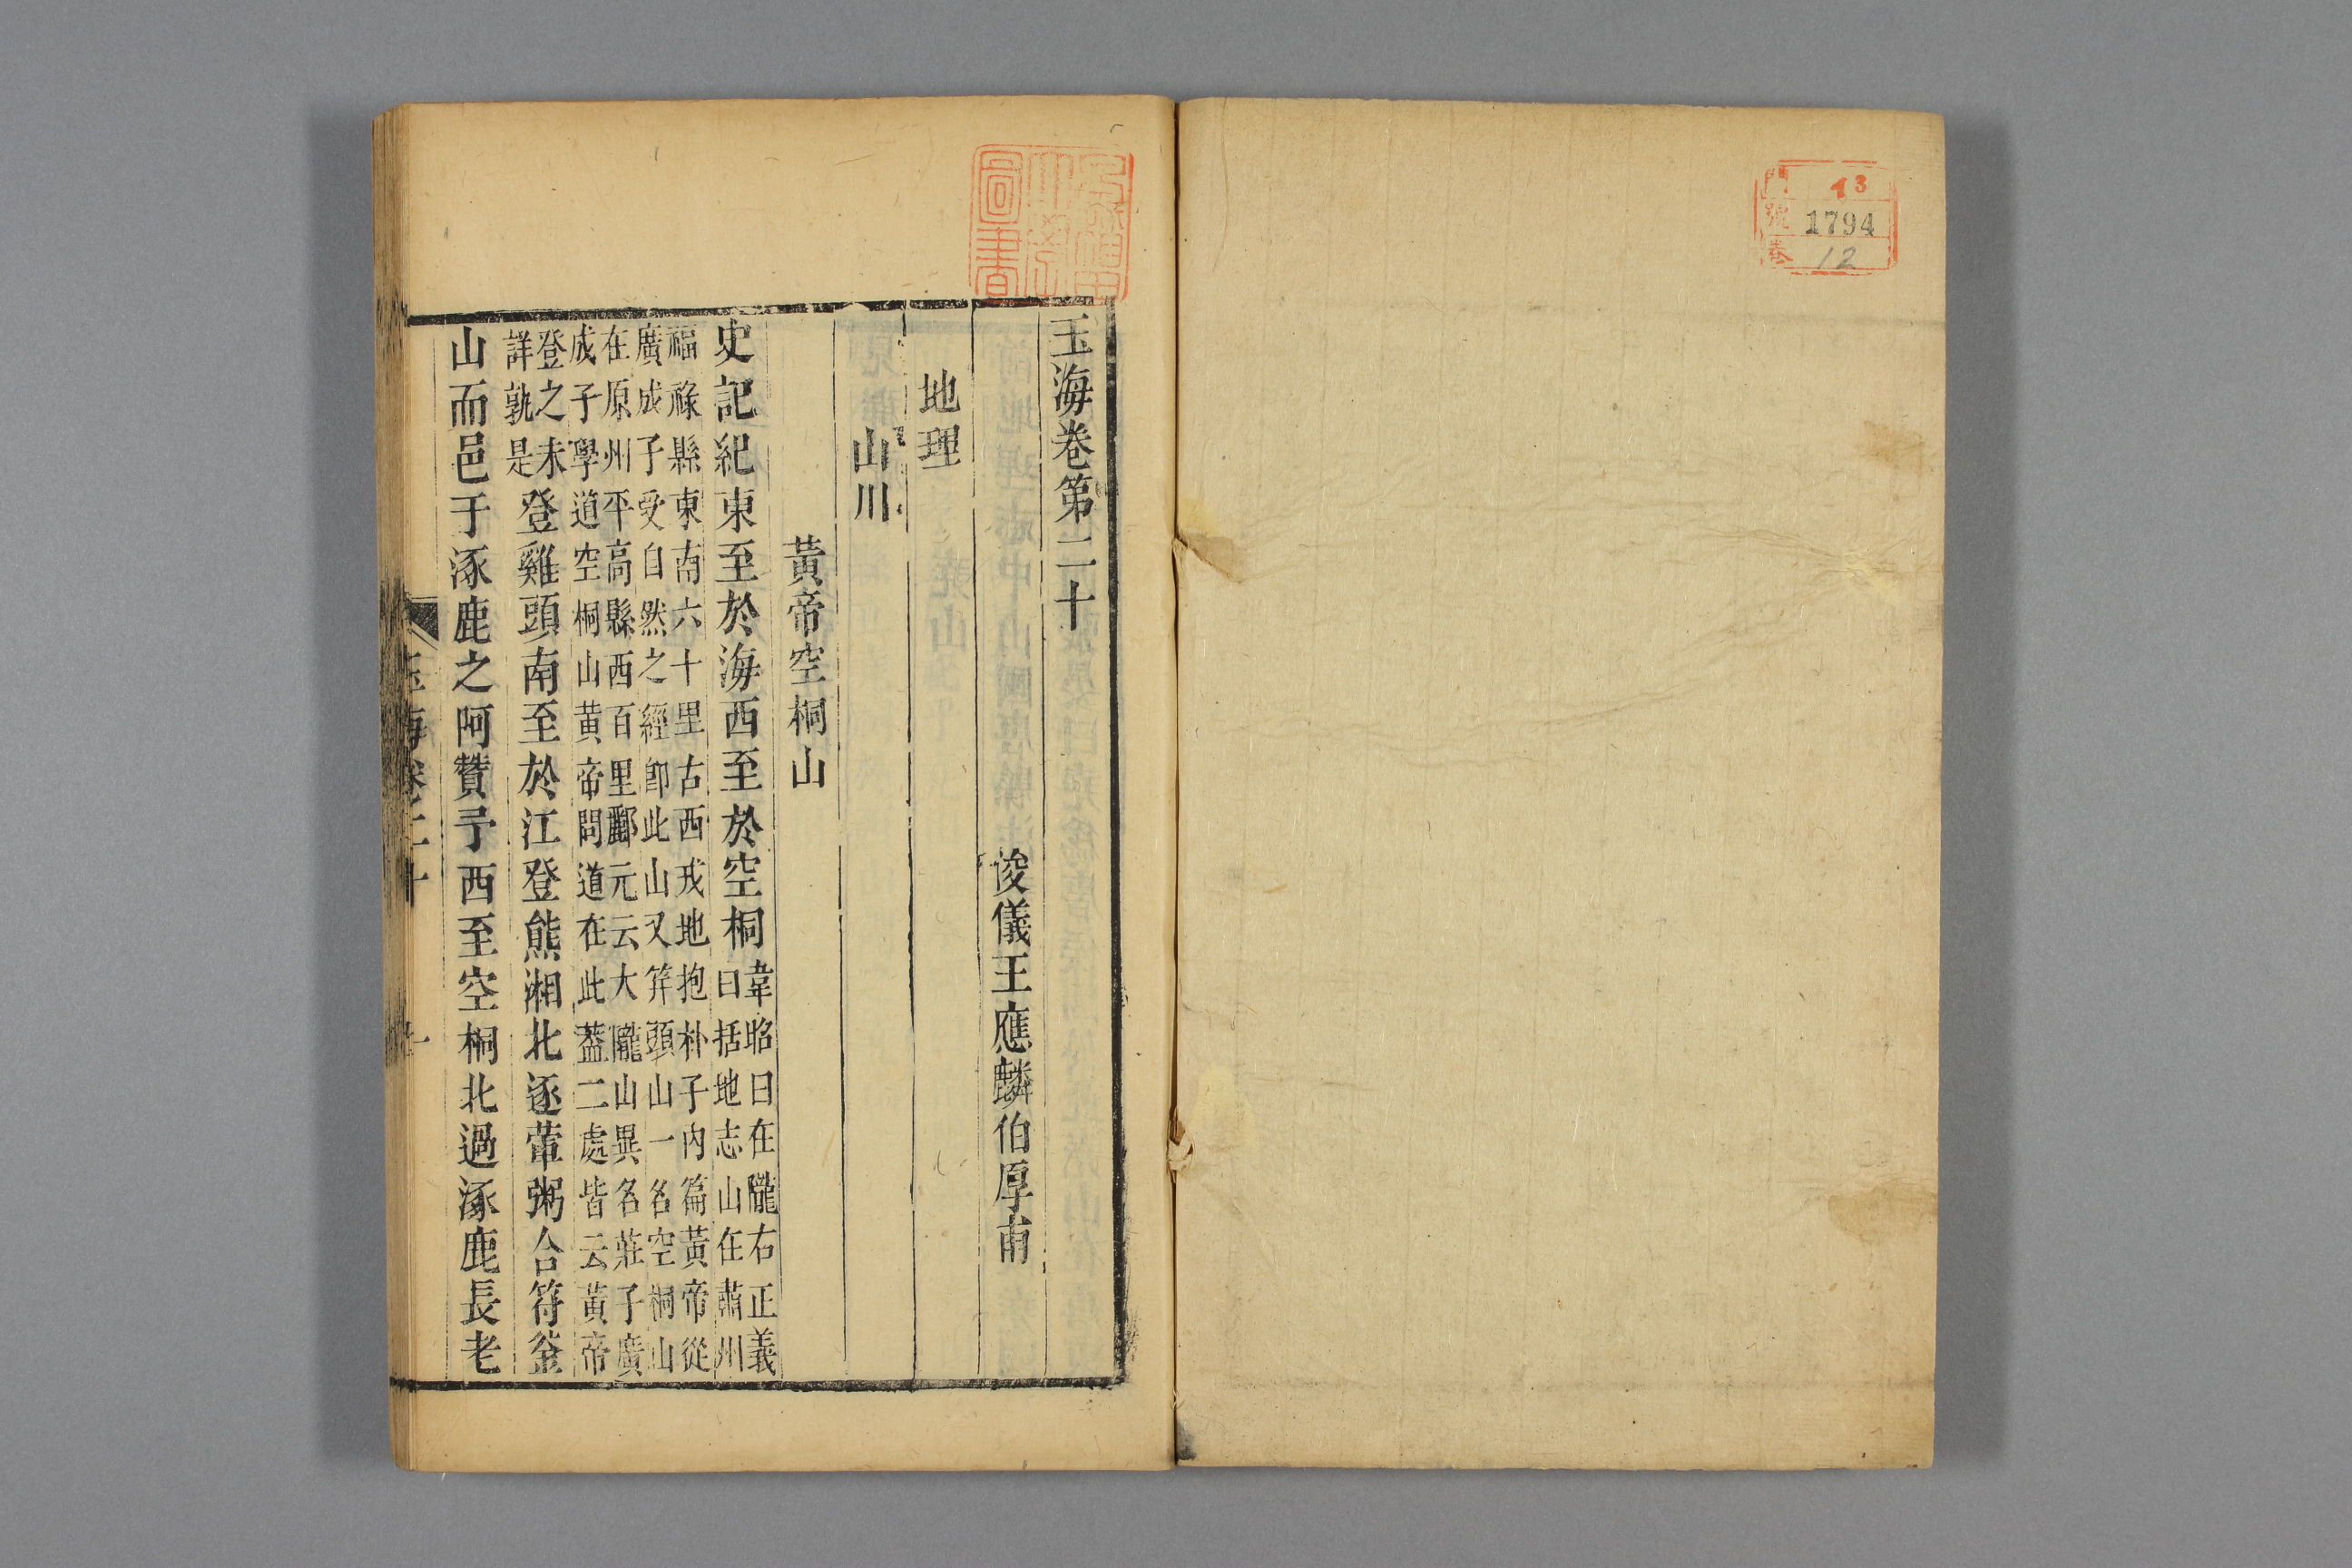 門 43
號 1794
卷 12
圖書
玉海卷第二十
浚儀王應麟伯厚甫
地理
山川
黃帝空桐山
史記紀東至於海西至於空桐韋昭曰在隴右正義
曰括地志山在肅州
福祿縣東南六十里古西戎地抱朴子內篇黃帝從
廣成子受自然之經卽此山又笄頭山一名空桐山
在原州平高縣西百里酈元云大隴山異名莊子廣
成子學道空桐山黃帝問道在此蓋二處皆云黃帝
登之未
詳孰是登雞頭南至於江登熊湘北逐葷粥合符釜
山而邑于涿鹿之阿贊予西至空桐北過涿鹿長老
玉海卷二十
一